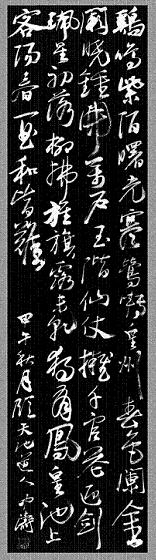 鷄鳴紫陌曙光寒鶯囀皇州春色闌金
闕曉鐘開萬户玉階仙仗擁千官花迎劍
珮星初落柳拂旌旗露未乾獨有鳳皇池上
客陽春一曲和皆難
甲午秋月 天池道人